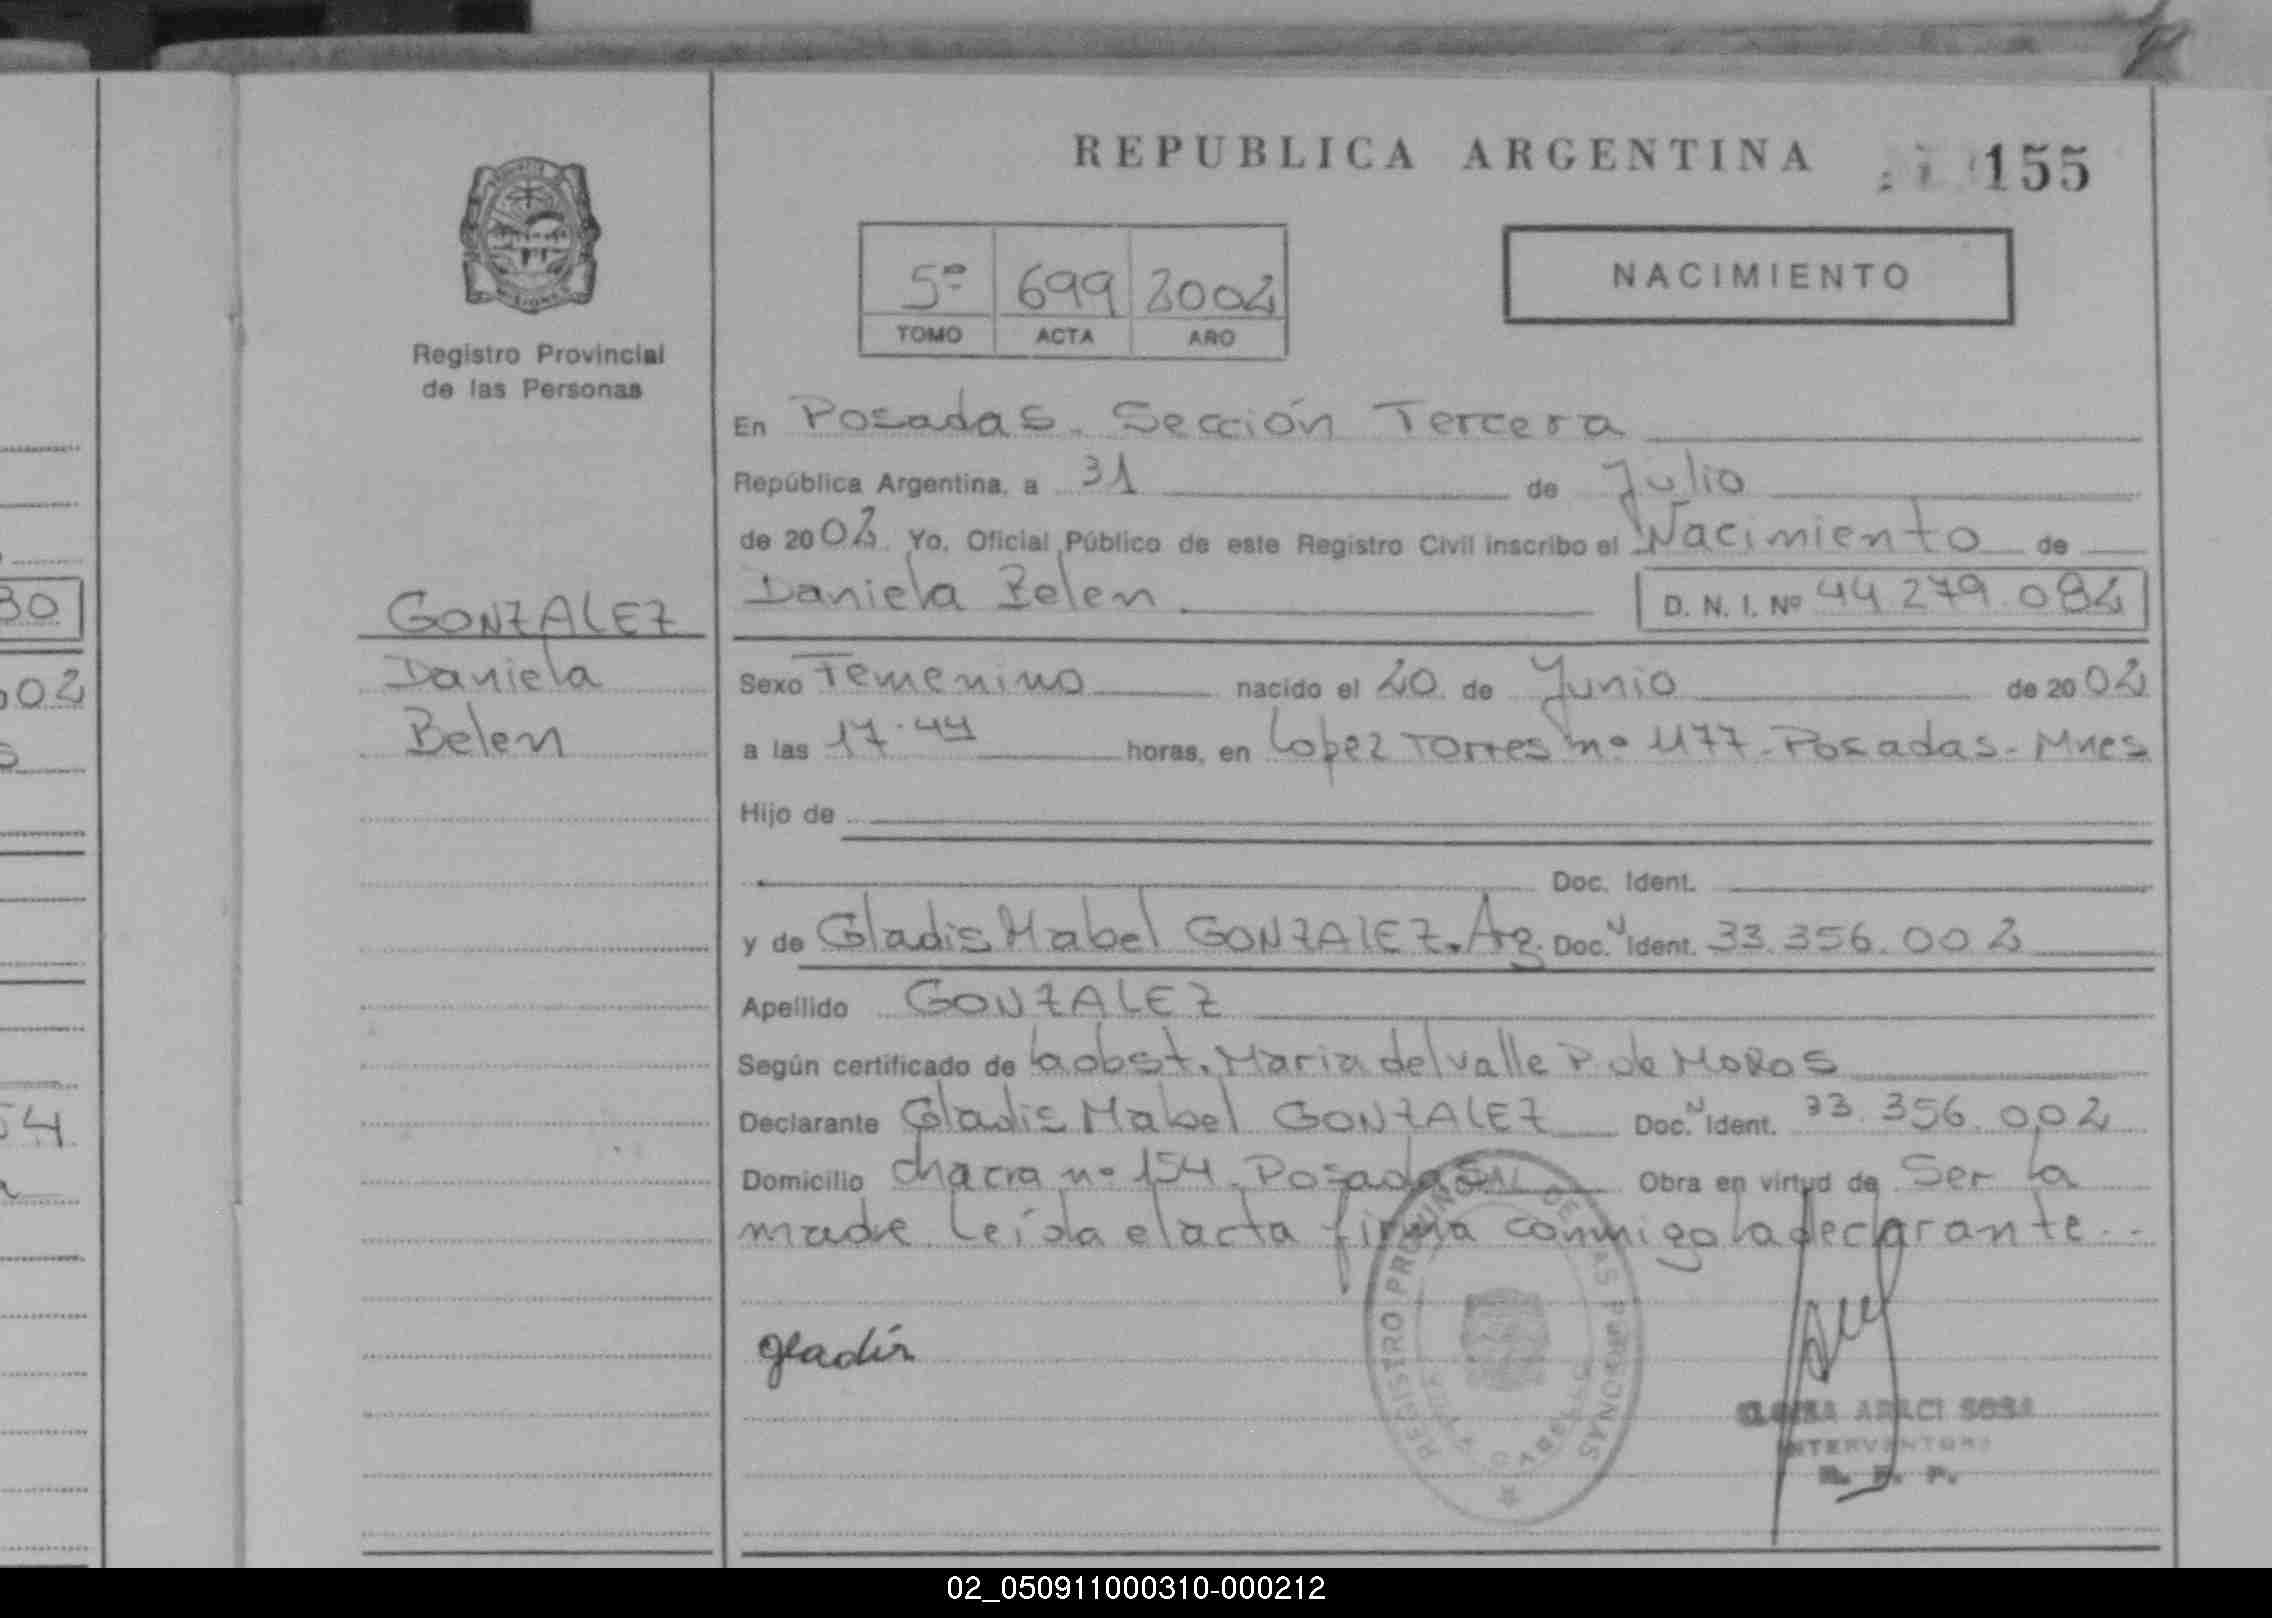 REPUBLICA ARGENTINA
155
NACIMIENTO
5º 699 2002
TOMO ACTA AÑO
Registro Provincial
de las Personas
En Posadas. Sección Tercera
República Argentina, a 31 de Julio
de 2002 Yo, Oficial Público de este Registro Civil inscribo el Nacimiento de
Daniela Belen D. N. I. Nº 44 279.082
GONZALEZ
Daniela
Belen
Sexo Femenino nacido el 20 de Junio de 2002
a las 17.44 horas, en Lopez Torres nº 1177-Posadas-Mnes
Hijo de
Doc. Ident.
y de Gladis Mabel GONZALEZ. Ag. Doc. Ident. 33.356.002
Apellido GONZALEZ
Según certificado de la obst. Maria del valle P. de MOROS
Declarante Gladis Mabel GONZALEZ Doc. Ident. 33.356.002
Domicilio chacra nº 154. Posadas Obra en virtud de Ser la
madre. Leída el acta firma conmigo la declarante.--
gladis
REGISTRO PROVINCIAL DE LAS PERSONAS
POSADAS
ARACI SOSA
INTERVENTORA
R. P. P.
30
02
54
02_050911000310-000212